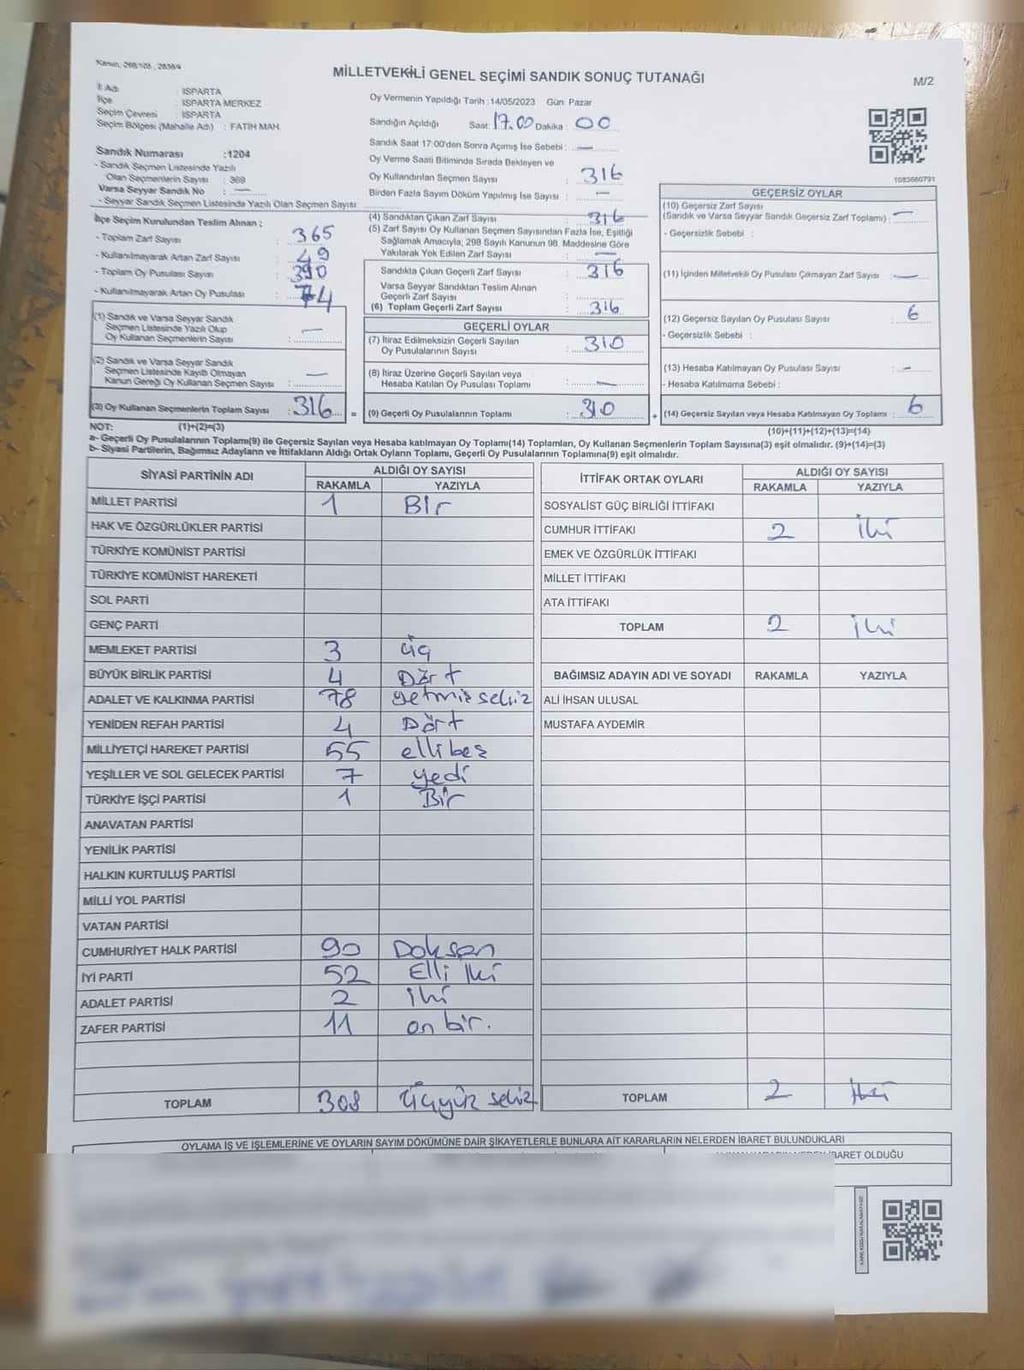 MİLLETVEKİLİ GENEL SEÇİMİ SANDIK SONUÇ TUTANAĞI
M/2
İl Adı : ISPARTA
İlçe : ISPARTA MERKEZ
Seçim Çevresi : ISPARTA
Seçim Bölgesi (Mahalle Adı) : FATİH MAH.
Sandık Numarası :1204
- Sandık Seçmen Listesinde Yazılı
Olan Seçmenlerin Sayısı : 369
Varsa Seyyar Sandık No : —
- Seyyar Sandık Seçmen Listesinde Yazılı Olan Seçmen Sayısı
Oy Vermenin Yapıldığı Tarih :14/05/2023 Gün Pazar
Sandığın Açıldığı Saat: 17.00 Dakika : 00
Sandık Saat 17:00'den Sonra Açımış İse Sebebi : —
Oy Verme Saati Bitiminde Sırada Bekleyen ve
Oy Kullandırılan Seçmen Sayısı : 316
Birden Fazla Sayım Döküm Yapılmış İse Sayısı : —
1083660791
İlçe Seçim Kurulundan Teslim Alınan ;
- Toplam Zarf Sayısı : 365
- Kullanılmayarak Artan Zarf Sayısı : 49
- Toplam Oy Pusulası Sayısı : 390
- Kullanılmayarak Artan Oy Pusulası : 74
(1) Sandık ve Varsa Seyyar Sandık
Seçmen Listesinde Yazılı Olup
Oy Kullanan Seçmenlerin Sayısı : —
(2) Sandık ve Varsa Seyyar Sandık
Seçmen Listesinde Kayıtlı Olmayan
Kanun Gereği Oy Kullanan Seçmen Sayısı : —
(3) Oy Kullanan Seçmenlerin Toplam Sayısı : 316
(4) Sandıktan Çıkan Zarf Sayısı : 316
(5) Zarf Sayısı Oy Kullanan Seçmen Sayısından Fazla İse, Eşitliği
Sağlamak Amacıyla, 298 Sayılı Kanunun 98. Maddesine Göre
Yakılarak Yok Edilen Zarf Sayısı : —
Sandıkta Çıkan Geçerli Zarf Sayısı : 316
Varsa Seyyar Sandıktan Teslim Alınan
Geçerli Zarf Sayısı
(6) Toplam Geçerli Zarf Sayısı : 316
GEÇERLİ OYLAR
(7) İtiraz Edilmeksizin Geçerli Sayılan
Oy Pusulalarının Sayısı : 310
(8) İtiraz Üzerine Geçerli Sayılan veya
Hesaba Katılan Oy Pusulası Toplamı : —
= (9) Geçerli Oy Pusulalarının Toplamı : 310 +
GEÇERSİZ OYLAR
(10) Geçersiz Zarf Sayısı
(Sandık ve Varsa Seyyar Sandık Geçersiz Zarf Toplamı) : —
- Geçersizlik Sebebi :
(11) İçinden Milletvekili Oy Pusulası Çıkmayan Zarf Sayısı : —
(12) Geçersiz Sayılan Oy Pusulası Sayısı : 6
- Geçersizlik Sebebi :
(13) Hesaba Katılmayan Oy Pusulası Sayısı : —
- Hesaba Katılmama Sebebi :
(14) Geçersiz Sayılan veya Hesaba Katılmayan Oy Toplamı : 6
NOT: (1)+(2)=(3) (10)+(11)+(12)+(13)=(14)
a- Geçerli Oy Pusulalarının Toplamı(9) ile Geçersiz Sayılan veya Hesaba katılmayan Oy Toplamı(14) Toplamları, Oy Kullanan Seçmenlerin Toplam Sayısına(3) eşit olmalıdır. (9)+(14)=(3)
b- Siyasi Partilerin, Bağımsız Adayların ve İttifakların Aldığı Ortak Oyların Toplamı, Geçerli Oy Pusulalarının Toplamına(9) eşit olmalıdır.
SİYASİ PARTİNİN ADI ALDIĞI OY SAYISI
RAKAMLA YAZIYLA
MİLLET PARTİSİ 1 Bir
HAK VE ÖZGÜRLÜKLER PARTİSİ
TÜRKİYE KOMÜNİST PARTİSİ
TÜRKİYE KOMÜNİST HAREKETİ
SOL PARTİ
GENÇ PARTİ
MEMLEKET PARTİSİ 3 üç
BÜYÜK BİRLİK PARTİSİ 4 Dört
ADALET VE KALKINMA PARTİSİ 78 yetmiş sekiz
YENİDEN REFAH PARTİSİ 4 Dört
MİLLİYETÇİ HAREKET PARTİSİ 55 elli beş
YEŞİLLER VE SOL GELECEK PARTİSİ 7 yedi
TÜRKİYE İŞÇİ PARTİSİ 1 Bir
ANAVATAN PARTİSİ
YENİLİK PARTİSİ
HALKIN KURTULUŞ PARTİSİ
MİLLİ YOL PARTİSİ
VATAN PARTİSİ
CUMHURİYET HALK PARTİSİ 90 Doksan
İYİ PARTİ 52 Elli iki
ADALET PARTİSİ 2 iki
ZAFER PARTİSİ 11 on bir.
TOPLAM 308 üçyüz sekiz
İTTİFAK ORTAK OYLARI ALDIĞI OY SAYISI
RAKAMLA YAZIYLA
SOSYALİST GÜÇ BİRLİĞİ İTTİFAKI
CUMHUR İTTİFAKI 2 iki
EMEK VE ÖZGÜRLÜK İTTİFAKI
MİLLET İTTİFAKI
ATA İTTİFAKI
TOPLAM 2 iki
BAĞIMSIZ ADAYIN ADI VE SOYADI RAKAMLA YAZIYLA
ALİ İHSAN ULUSAL
MUSTAFA AYDEMİR
TOPLAM 2 iki
OYLAMA İŞ VE İŞLEMLERİNE VE OYLARIN SAYIM DÖKÜMÜNE DAİR ŞİKAYETLERLE BUNLARA AİT KARARLARIN NELERDEN İBARET BULUNDUKLARI
İBARET OLDUĞU